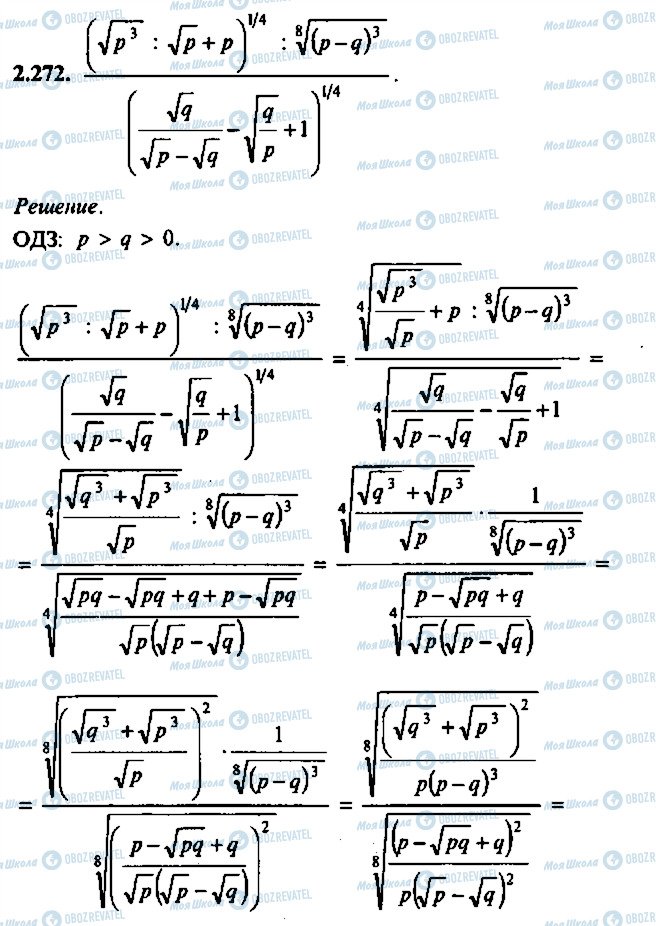 2.272. \frac{\left(\sqrt{p^3} : \sqrt{p} + p\right)^{1/4} : \sqrt[8]{(p-q)^3}}{\left(\frac{\sqrt{q}}{\sqrt{p}-\sqrt{q}} - \sqrt{\frac{q}{p}} + 1\right)^{1/4}}.
Решение.
ОДЗ: p > q > 0.
\frac{\left(\sqrt{p^3} : \sqrt{p} + p\right)^{1/4} : \sqrt[8]{(p-q)^3}}{\left(\frac{\sqrt{q}}{\sqrt{p}-\sqrt{q}} - \sqrt{\frac{q}{p}} + 1\right)^{1/4}} = \frac{\sqrt[4]{\frac{\sqrt{p^3}}{\sqrt{p}} + p} : \sqrt[8]{(p-q)^3}}{\sqrt[4]{\frac{\sqrt{q}}{\sqrt{p}-\sqrt{q}} - \frac{\sqrt{q}}{\sqrt{p}} + 1}} =
= \frac{\sqrt[4]{\frac{\sqrt{q^3}+\sqrt{p^3}}{\sqrt{p}}} : \sqrt[8]{(p-q)^3}}{\sqrt[4]{\frac{\sqrt{pq}-\sqrt{pq}+q+p-\sqrt{pq}}{\sqrt{p}(\sqrt{p}-\sqrt{q})}}} = \frac{\sqrt[4]{\frac{\sqrt{q^3}+\sqrt{p^3}}{\sqrt{p}}} \cdot \frac{1}{\sqrt[8]{(p-q)^3}}}{\sqrt[4]{\frac{p-\sqrt{pq}+q}{\sqrt{p}(\sqrt{p}-\sqrt{q})}}} =
= \frac{\sqrt[8]{\left(\frac{\sqrt{q^3}+\sqrt{p^3}}{\sqrt{p}}\right)^2} \cdot \frac{1}{\sqrt[8]{(p-q)^3}}}{\sqrt[8]{\left(\frac{p-\sqrt{pq}+q}{\sqrt{p}(\sqrt{p}-\sqrt{q})}\right)^2}} = \frac{\sqrt[8]{\frac{\left(\sqrt{q^3}+\sqrt{p^3}\right)^2}{p(p-q)^3}}}{\sqrt[8]{\frac{(p-\sqrt{pq}+q)^2}{p(\sqrt{p}-\sqrt{q})^2}}} =